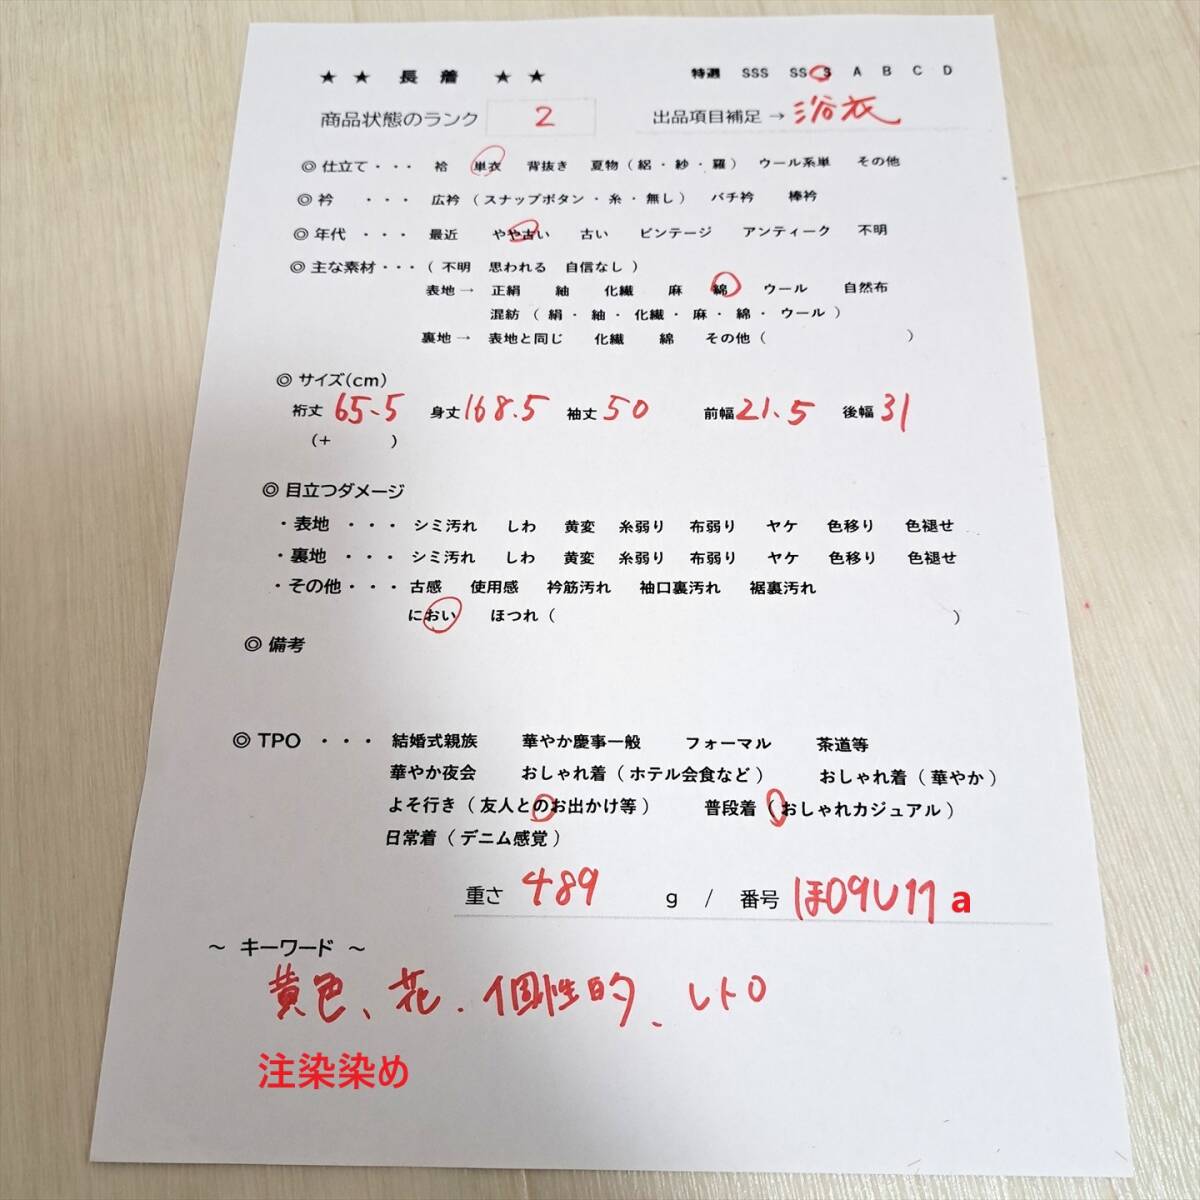 ★ ★ 長 着 ★ ★ 特選 SSS SS S A B C D
商品状態のランク 2 出品項目補足 → 浴衣
◎ 仕立て ・・・ 袷 単衣 背抜き 夏物 ( 絽 ・ 紗 ・ 羅 ) ウール系単 その他
◎ 衿 ・・・ 広衿 ( スナップボタン ・ 糸 ・ 無し ) バチ衿 棒衿
◎ 年代 ・・・ 最近 やや古い 古い ビンテージ アンティーク 不明
◎ 主な素材 ・・・ ( 不明 思われる 自信なし )
表地 → 正絹 紬 化繊 麻 綿 ウール 自然布
混紡 ( 絹 ・ 紬 ・ 化繊 ・ 麻 ・ 綿 ・ ウール )
裏地 → 表地と同じ 化繊 綿 その他 ( )
◎ サイズ(cm)
裄丈 65.5 身丈 168.5 袖丈 50 前幅 21.5 後幅 31
(+ )
◎ 目立つダメージ
・表地 ・・・ シミ汚れ しわ 黄変 糸弱り 布弱り ヤケ 色移り 色褪せ
・裏地 ・・・ シミ汚れ しわ 黄変 糸弱り 布弱り ヤケ 色移り 色褪せ
・その他 ・・・ 古感 使用感 衿筋汚れ 袖口裏汚れ 裾裏汚れ
におい ほつれ ( )
◎ 備考
◎ TPO ・・・ 結婚式親族 華やか慶事一般 フォーマル 茶道等
華やか夜会 おしゃれ着 ( ホテル会食など ) おしゃれ着 ( 華やか )
よそ行き ( 友人とのお出かけ等 ) 普段着 ( おしゃれカジュアル )
日常着 ( デニム感覚 )
重さ 489 g / 番号 ほ09し17 a
～ キーワード ～
黄色、花、個性的、レトロ
注染染め